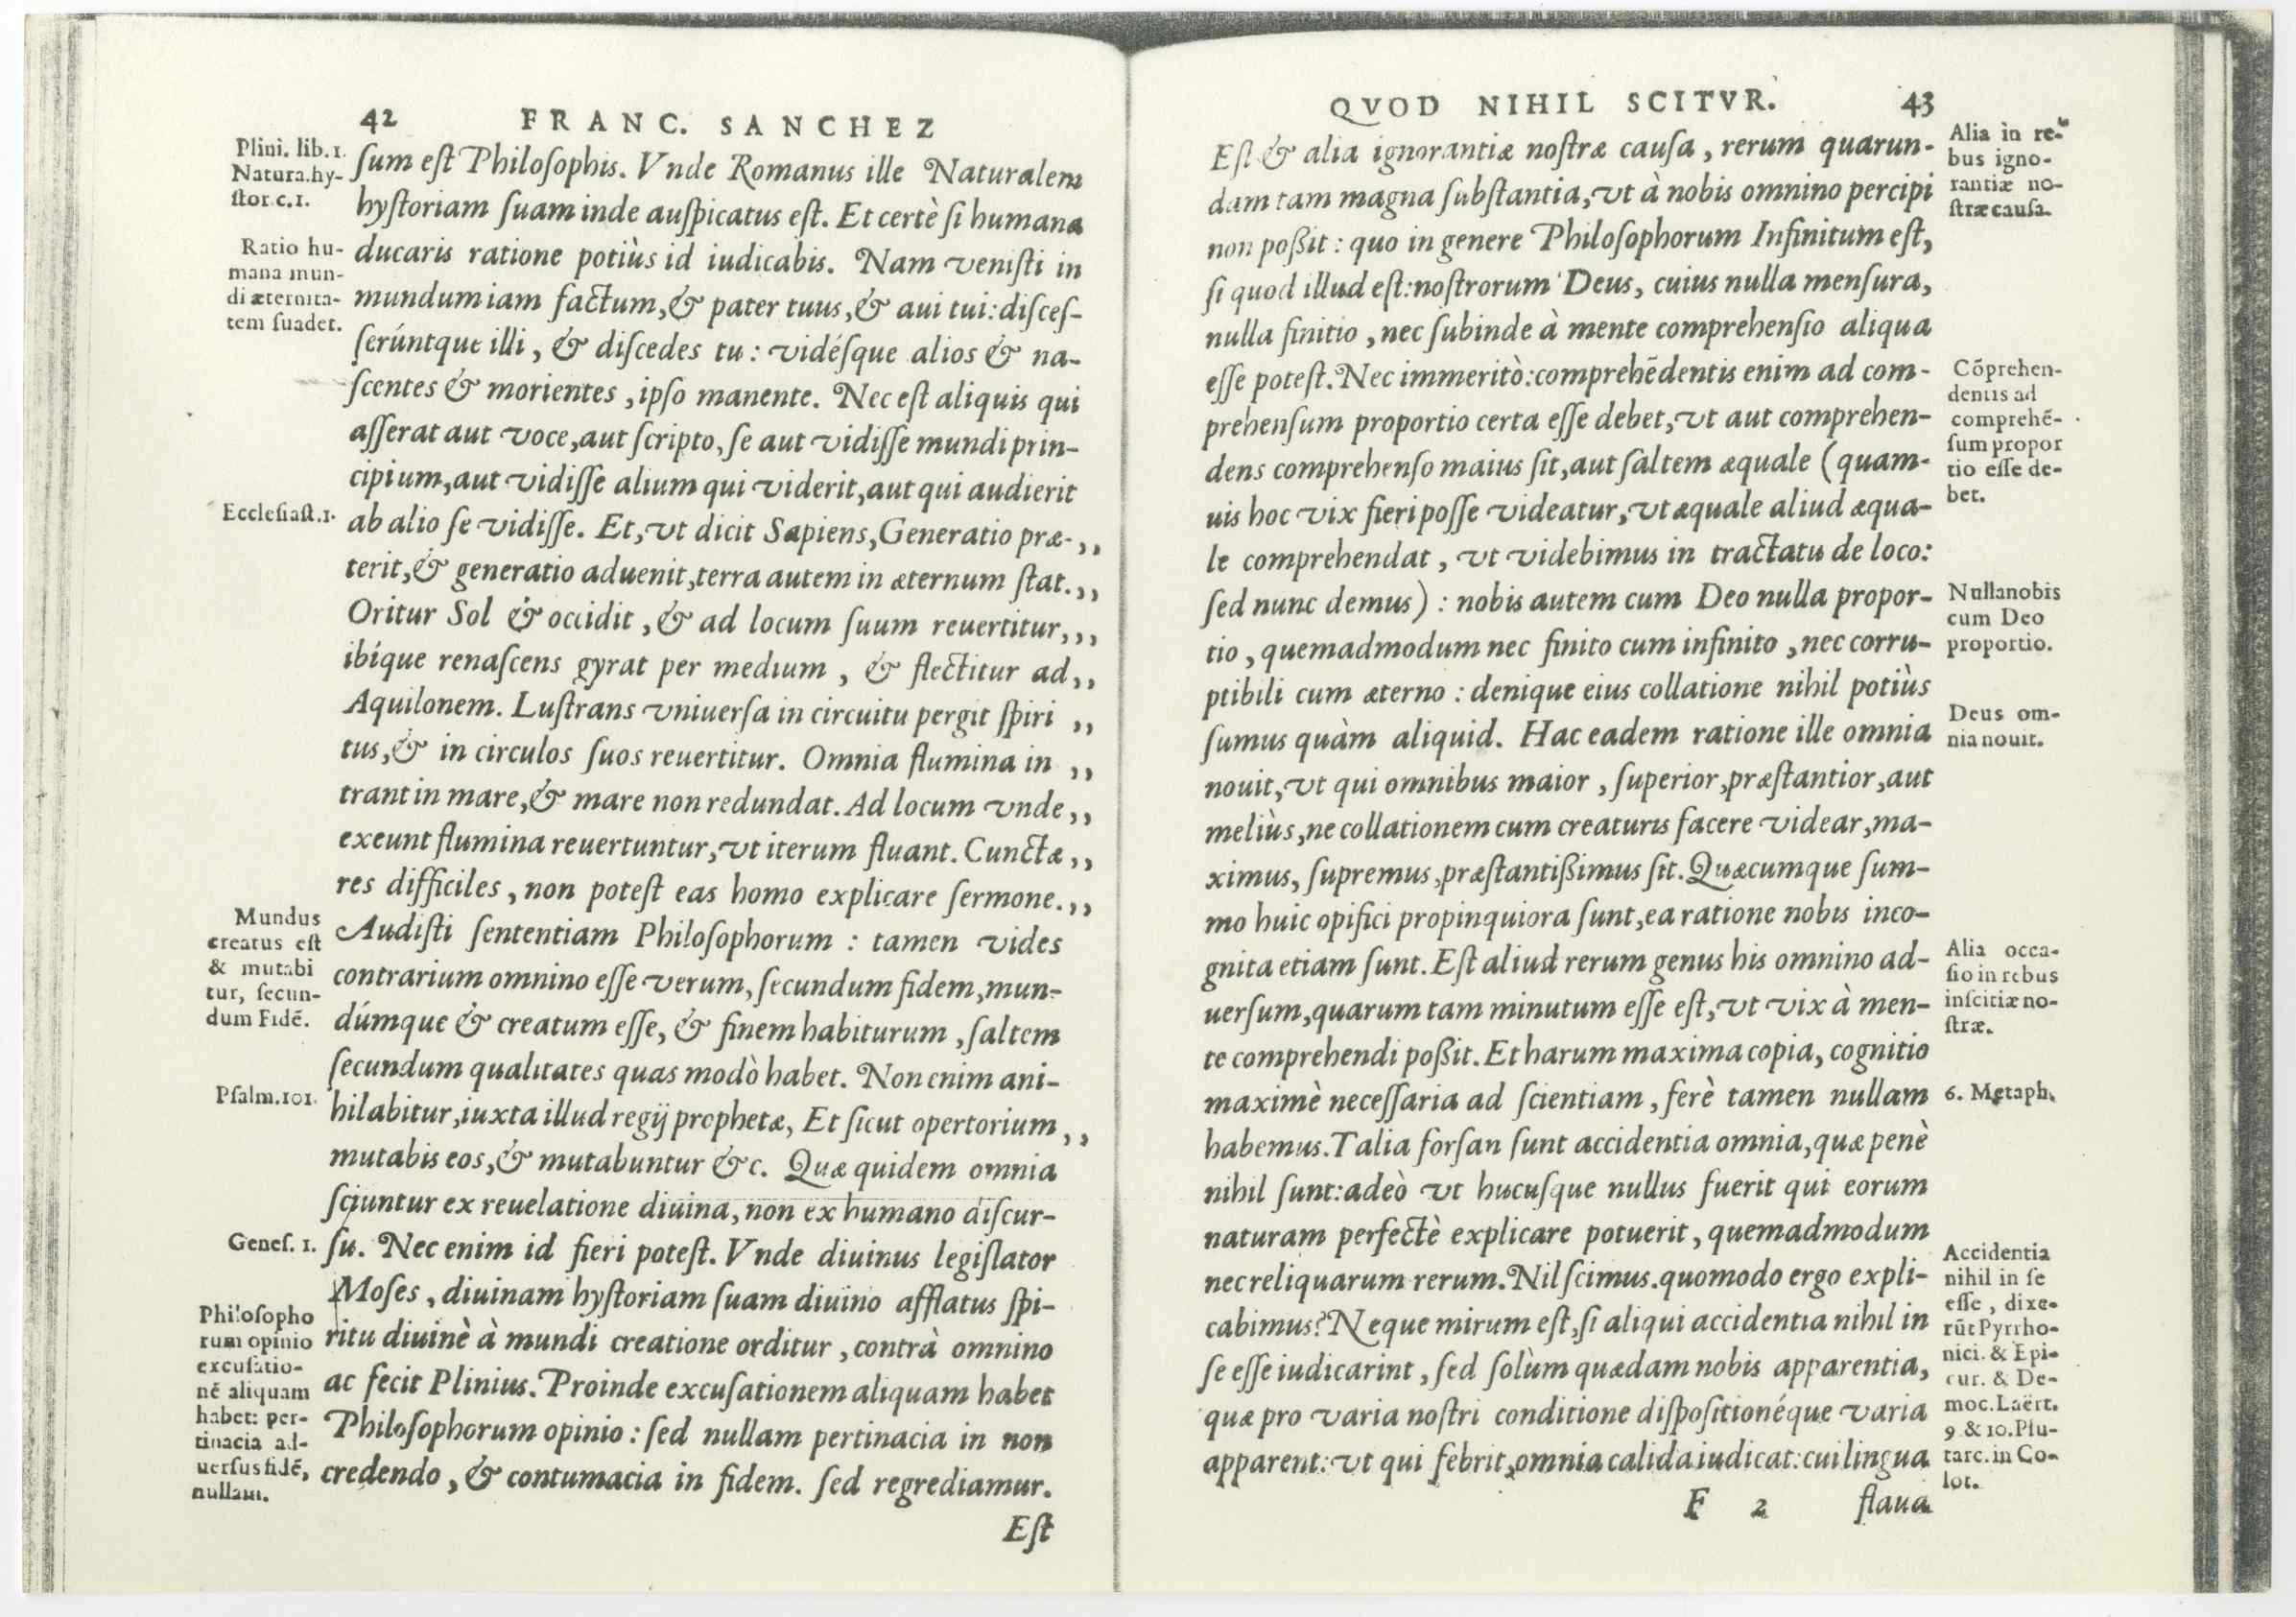 42 FRANC. SANCHEZ
Plini. lib.1.
Natura.hy-
stor.c.1.
Ratio hu-
mana mun-
di æternita-
tem suadet.
Ecclesiast.1.
Mundus
creatus est
& mutabi
tur, secun-
dum Fidē.
Psalm.101.
Genes. 1.
Philosopho
rum opinio
excusatio-
nē aliquam
habet: per-
tinacia ad-
uersus fidē,
nullam.
sum est Philosophis. Vnde Romanus ille Naturalem
hystoriam suam inde auspicatus est. Et certè si humana
ducaris ratione potiùs id iudicabis. Nam venisti in
mundum iam factum, & pater tuus, & aui tui: disces-
serúntque illi, & discedes tu: vidésque alios & na-
scentes & morientes, ipso manente. Nec est aliquis qui
asserat aut voce, aut scripto, se aut vidisse mundi prin-
cipium, aut vidisse alium qui viderit, aut qui audierit
ab alio se vidisse. Et, vt dicit Sapiens, Generatio præ-,,
terit, & generatio aduenit, terra autem in æternum stat.,,
Oritur Sol & occidit, & ad locum suum reuertitur,,,
ibíque renascens gyrat per medium, & flectitur ad,,
Aquilonem. Lustrans vniuersa in circuitu pergit spiri ,,
tus, & in circulos suos reuertitur. Omnia flumina in ,,
trant in mare, & mare non redundat. Ad locum vnde,,
exeunt flumina reuertuntur, vt iterum fluant. Cunctæ,,
res difficiles, non potest eas homo explicare sermone.,,
Audisti sententiam Philosophorum: tamen vides
contrarium omnino esse verum, secundum fidem, mun-
dúmque & creatum esse, & finem habiturum, saltem
secundum qualitates quas modò habet. Non enim ani-
hilabitur, iuxta illud regij prophetæ, Et sicut opertorium,,
mutabis eos, & mutabuntur &c. Quæ quidem omnia
sciuntur ex reuelatione diuina, non ex humano discur-
su. Nec enim id fieri potest. Vnde diuinus legislator
Moses, diuinam hystoriam suam diuino afflatus spi-
ritu diuinè à mundi creatione orditur, contrà omnino
ac fecit Plinius. Proinde excusationem aliquam habet
Philosophorum opinio: sed nullam pertinacia in non
credendo, & contumacia in fidem. sed regrediamur.
Est
QVOD NIHIL SCITVR. 43
Est & alia ignorantiæ nostræ causa, rerum quarun-
dam tam magna substantia, vt à nobis omnino percipi
non possit: quo in genere Philosophorum Infinitum est,
si quod illud est: nostrorum Deus, cuius nulla mensura,
nulla finitio, nec subinde à mente comprehensio aliqua
esse potest. Nec immeritò: comprehēdentis enim ad com-
prehensum proportio certa esse debet, vt aut comprehen-
dens comprehenso maius sit, aut saltem æquale (quam-
uis hoc vix fieri posse videatur, vt æquale aliud æqua-
le comprehendat, vt videbimus in tractatu de loco:
sed nunc demus): nobis autem cum Deo nulla propor-
tio, quemadmodum nec finito cum infinito, nec corru-
ptibili cum æterno: denique eius collatione nihil potiùs
sumus quàm aliquid. Hac eadem ratione ille omnia
nouit, vt qui omnibus maior, superior, præstantior, aut
meliùs, ne collationem cum creaturis facere videar, ma-
ximus, supremus, præstantissimus sit. Quæcumque sum-
mo huic opifici propinquiora sunt, ea ratione nobis inco-
gnita etiam sunt. Est aliud rerum genus his omnino ad-
uersum, quarum tam minutum esse est, vt vix à men-
te comprehendi possit. Et harum maxima copia, cognitio
maximè necessaria ad scientiam, ferè tamen nullam
habemus. Talia forsan sunt accidentia omnia, quæ penè
nihil sunt: adeò vt hucusque nullus fuerit qui eorum
naturam perfectè explicare potuerit, quemadmodum
nec reliquarum rerum. Nil scimus. quomodo ergo expli-
cabimus? Neque mirum est, si aliqui accidentia nihil in
se esse iudicarint, sed solùm quædam nobis apparentia,
quæ pro varia nostri conditione dispositionéque varia
apparent: vt qui febrit, omnia calida iudicat: cui lingua
F 2 flaua
Alia in re-
bus igno-
rantiæ no-
stræ causa.
Cōprehen-
dentis ad
comprehē-
sum propor
tio esse de-
bet.
Nulla nobis
cum Deo
proportio.
Deus om-
nia nouit.
Alia occa-
sio in rebus
inscitiæ no-
stræ.
6. Metaph.
Accidentia
nihil in se
esse, dixe-
rūt Pyrrho-
nici. & Epi-
cur. & De-
moc. Laërt.
9 & 10. Plu-
tarc. in Co-
lot.